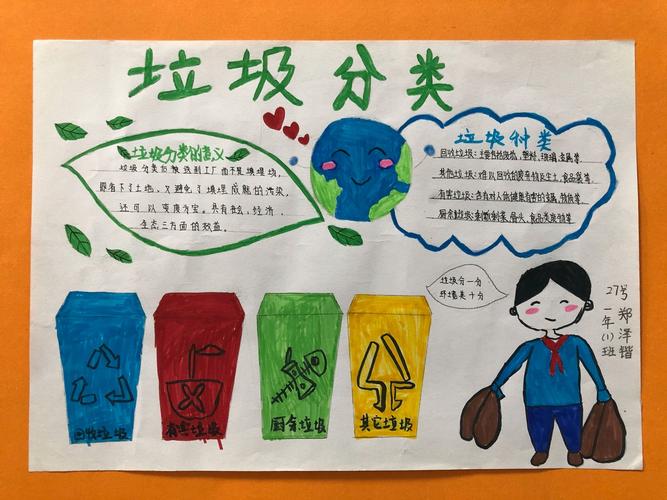 垃圾分类
垃圾分类的意义
垃圾分类后被送到工厂而不是填埋场,
既省下了土地,又避免了填埋或焚烧的污染,
还可以变废为宝。具有社会,经济,
生态三方面的效益。
垃圾种类
回收垃圾:主要包括废纸,塑料,玻璃,金属等
其他垃圾:难以回收的
有害垃圾:含有对人体健康有害的
厨余垃圾:剩菜剩菜,骨头,
垃圾分一分
环境美十分
27号
一年(1)班
郑泽锴
回收垃圾
有害垃圾
厨余垃圾
其它垃圾